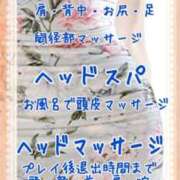 肩・背中・お尻・足
鼠径部マッサージ
ヘッドスパ
お風呂で頭皮マッサージ
ヘッドマッサージ
プレイ後退出時間まで